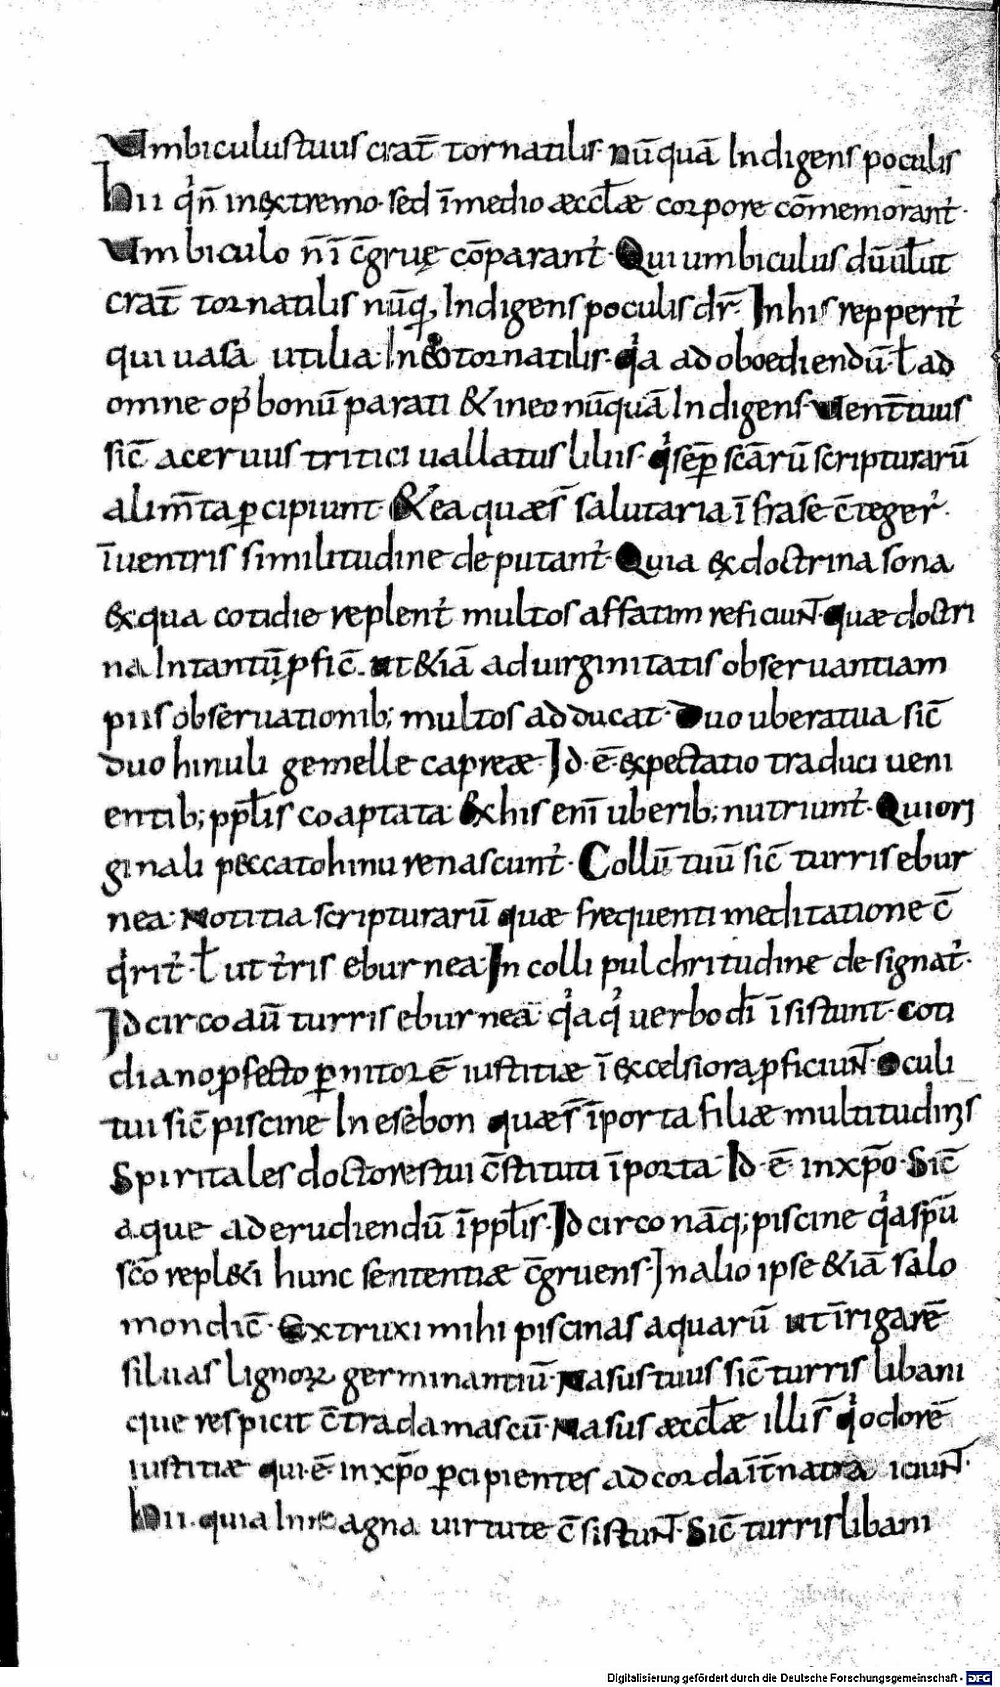 Umbiculus tuus crat̄ tornatilis· nū̄quā Indigens poculis
hii q̇n̄ in extremo· sed ī medio æccl̄æ corpore cōmemorant̓·
Umbiculo n̄ ī c̄gruę cōparant̓· Qui umbiculus dū ul̄ ut
crat̄ tornatilis nū̄q̨ Indigens poculis dr̄· In his repperit̓
qui uasa utilia· In eo tornatilis· q̓a ad oboediendū· ł ad
omne op̓ bonū parati & in eo nūquā Indigens· Uent̄ tuus
sic̄ aceruus tritici uallatus liliis· q̓ sēp̄ scārū scripturarū
alim̄ta ꝑcipiunt· & ea quæ s̄ salutaria ī frase c̄teger̓·
ī uentris similitudine deputant̓· Quia ex doctrina sona
ex qua cotidie replent̓ multos affatim reficiunt· quæ doctri
na In tantū ꝓfic̄· ut &iā ad uirginitatis obseruantiam
piis obseruationib; multos adducat· Duo ubera tua sic̄
duo hinuli gemelle capreæ· Id· ē· expectatio traduci ueni
entib; ppl̄is coaptata· Ex his enī uberib; nutriunt̓· Qui ori
ginali peccato hinu renascunt̓· Collū tuū sic̄ turris ebur
nea· Notitia scripturarū quæ frequenti meditatione c̄
q̓rit̓· ł ut t̓ris eburnea· In colli pulchritudine designat̓·
Idcirco aū turris eburnea· q̓a q̓ uerbo dī īsistunt· coti
diano ꝓfecto ꝑ nitorē iustitiæ ī excelsiora ꝓficiunt· Oculi
tui sic̄ piscine In esebon quæ s̄ ī porta filiæ multitudinis
Spiritales doctores tui c̄stituti ī porta· Id· ē· in xp̄o· Sic̄
aque ad erudiendū ī ppl̄is· Idcirco nāq; piscine q̓a sp̄ū
sc̄o repl&i hunc sententiæ c̄gruens· In alio ipse &iā salo
mon dic̄· Extruxi mihi piscinas aquarū ut īrigarē
siluas lignoꝝ germinantiū· Nasus tuus sic̄ turris libani
que respicit c̄tra damascū· Nasus æccl̄æ illi s̄ q̓ odorē
iustitiæ qui· ē· in xp̄o ꝑcipientes ad cor
hii· quia In magna uirtute c̄sistunt· Sic̄ turris libani
Digitalisierung gefördert durch die Deutsche Forschungsgemeinschaft - DFG